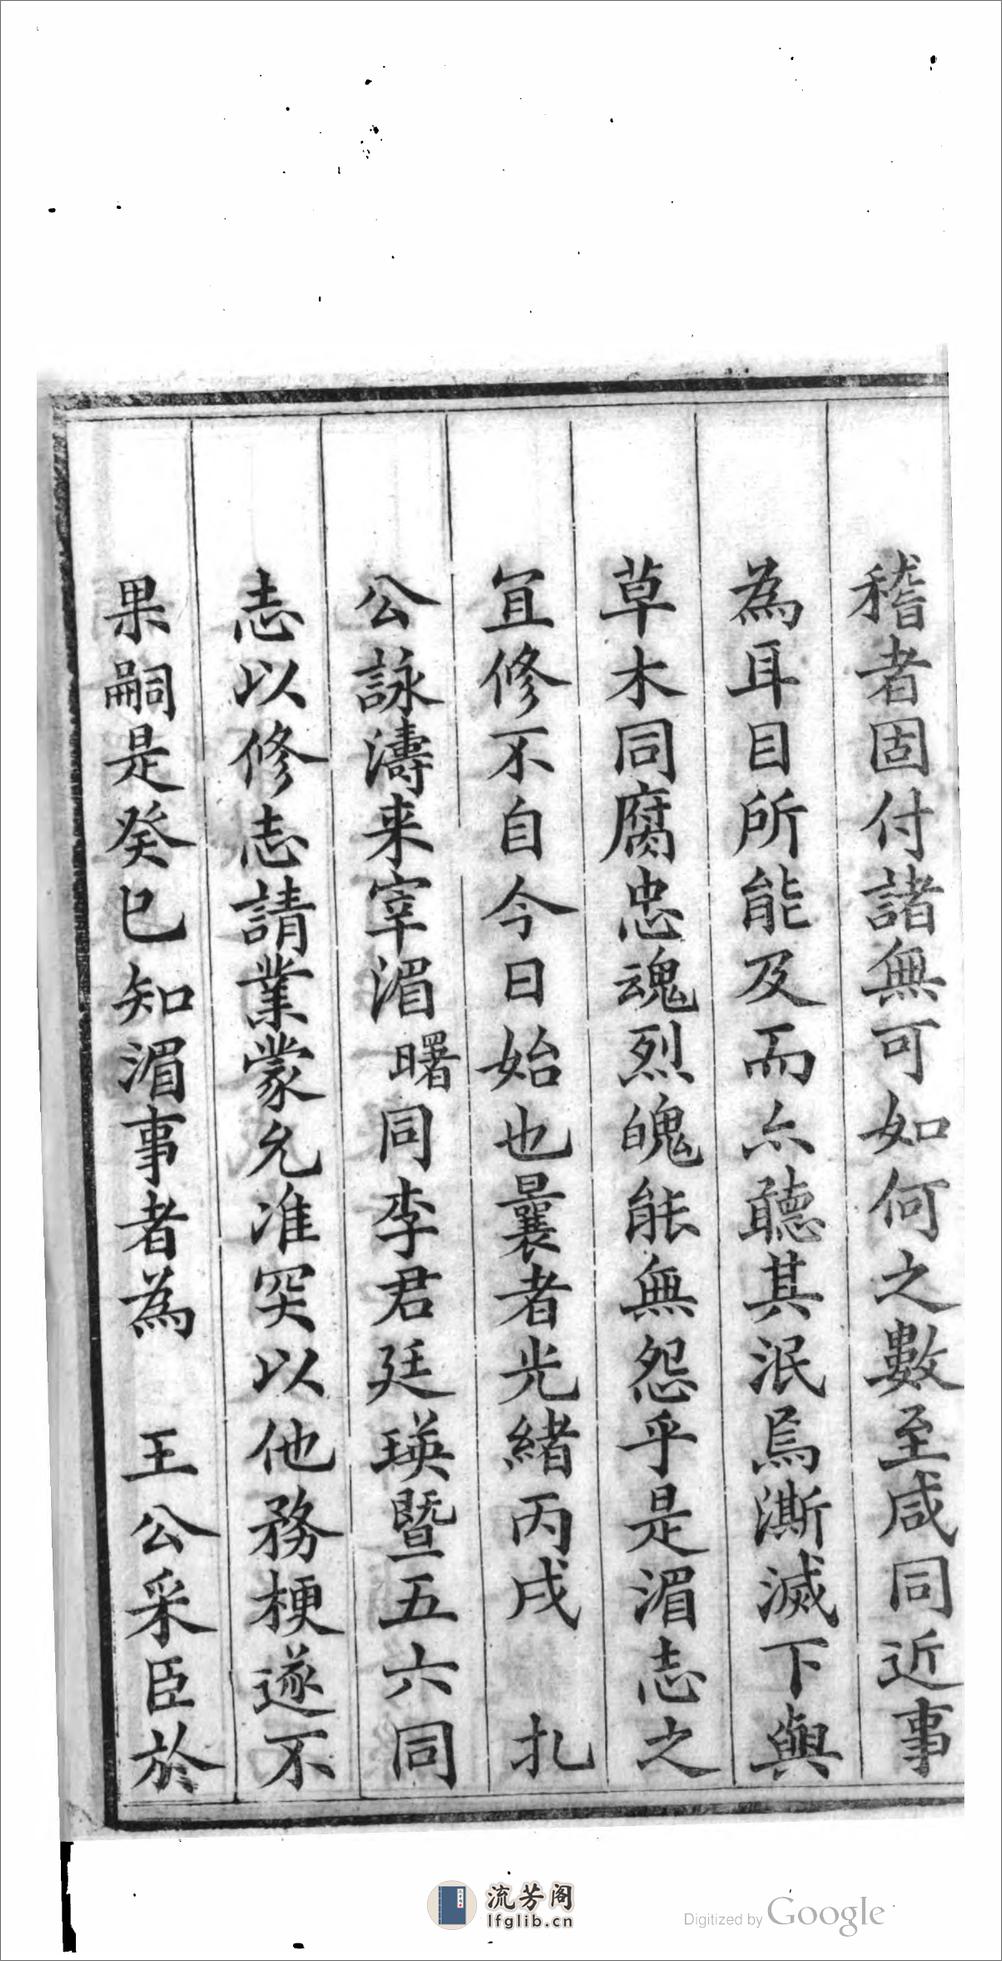 稽者固付諸無可如何之數至咸同近事
為耳目所能及而亦聽其泯焉澌滅下與
草木同腐忠魂烈魄能無怨乎是湄志之
宜修不自今日始也曩者光緒丙戌　扎
公詠濤来宰湄曙同李君廷瑛暨五六同
志以修志請業蒙允准突以他務梗遂不
果嗣是癸巳知湄事者為　王公采臣於
流芳阁
lfglib.cn
Digitized by Google